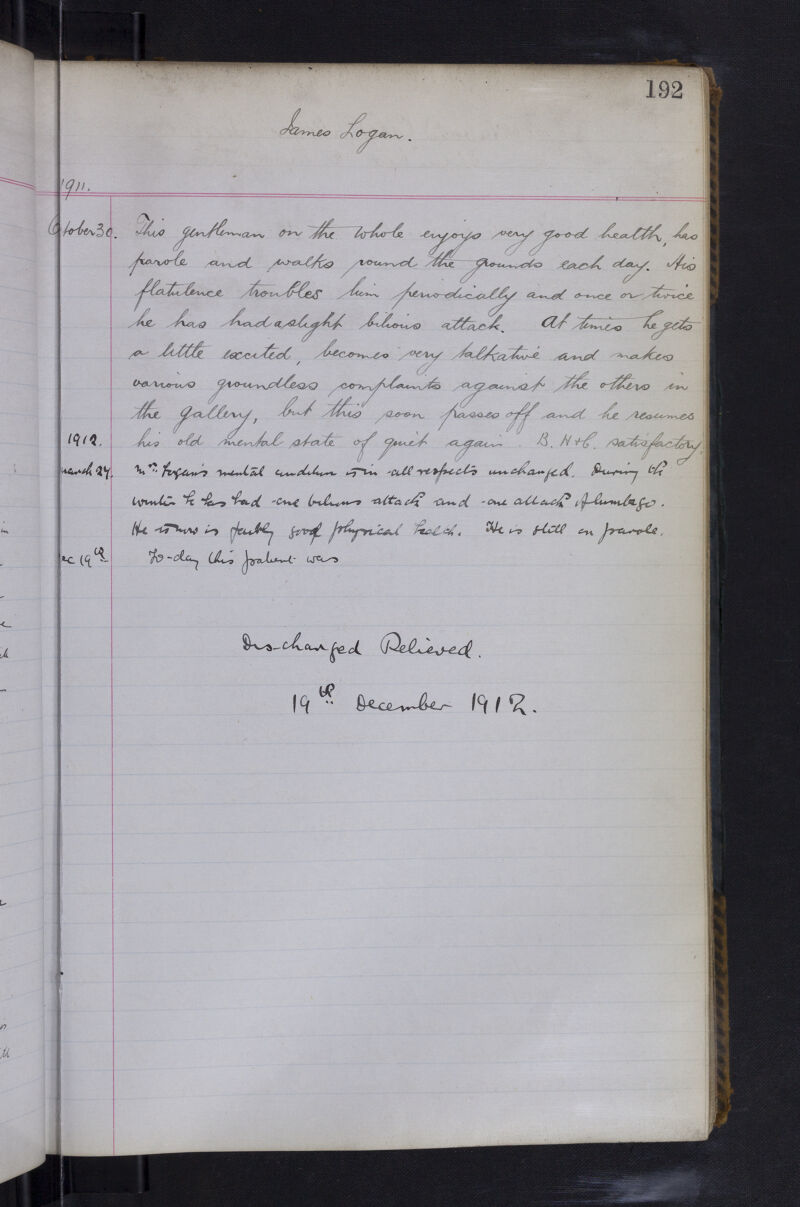 192
James Logan.
1911.
October 30. This gentleman on the whole enjoys very good health, has
parole and walks round the grounds each day. His
flatulence troubles him periodically and once or twice
he has had a slight bilious attack. At times he gets
a little excited, becomes very talkative and makes
various groundless complaints against the others in
the gallery, but this soon passes off and he resumes
1912. his old mental state of quiet again. B. H+L. satisfactory.
March 24. Mr. Logan's mental condition is in all respects unchanged. During the
winter he has had one bilious attack and one attack of lumbago.
He is now in fairly good physical health. He is still on parole.
Dec 19th To-day this patient was
Discharged Relieved.
19th December 1912.